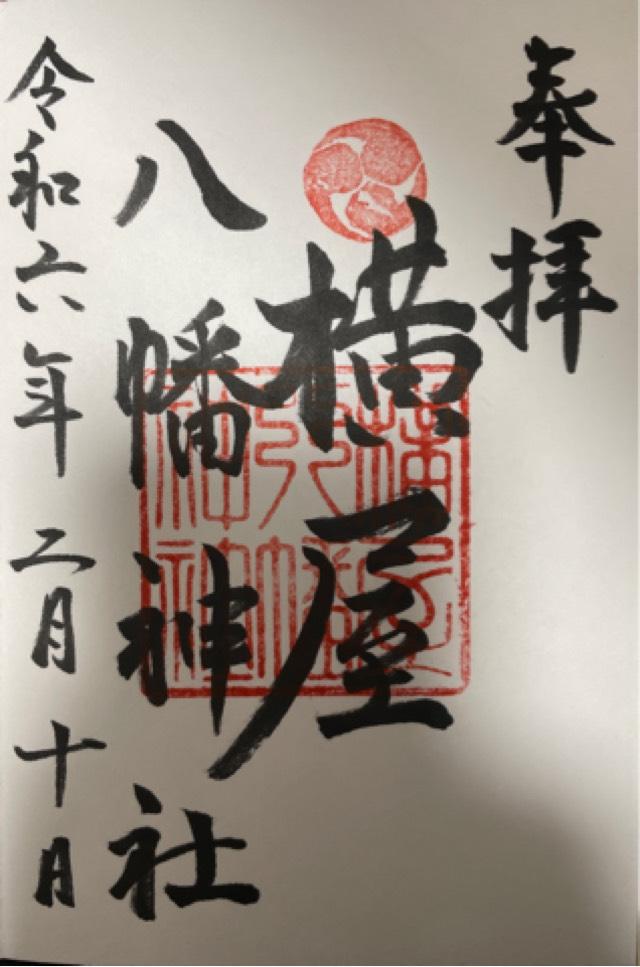 奉拝
横屋
八幡神社
令和六年二月十日
横屋
八幡
神社